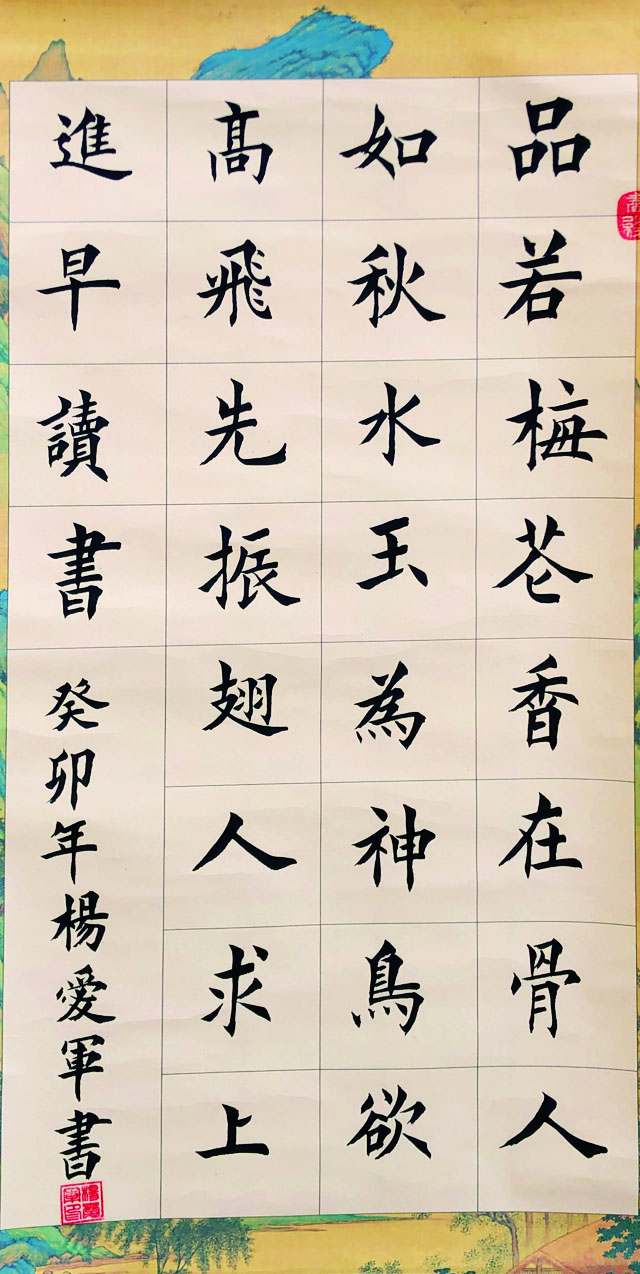 品若梅花香在骨人
如秋水玉為神鳥欲
高飛先振翅人求上
進早讀書
癸卯年楊愛軍書